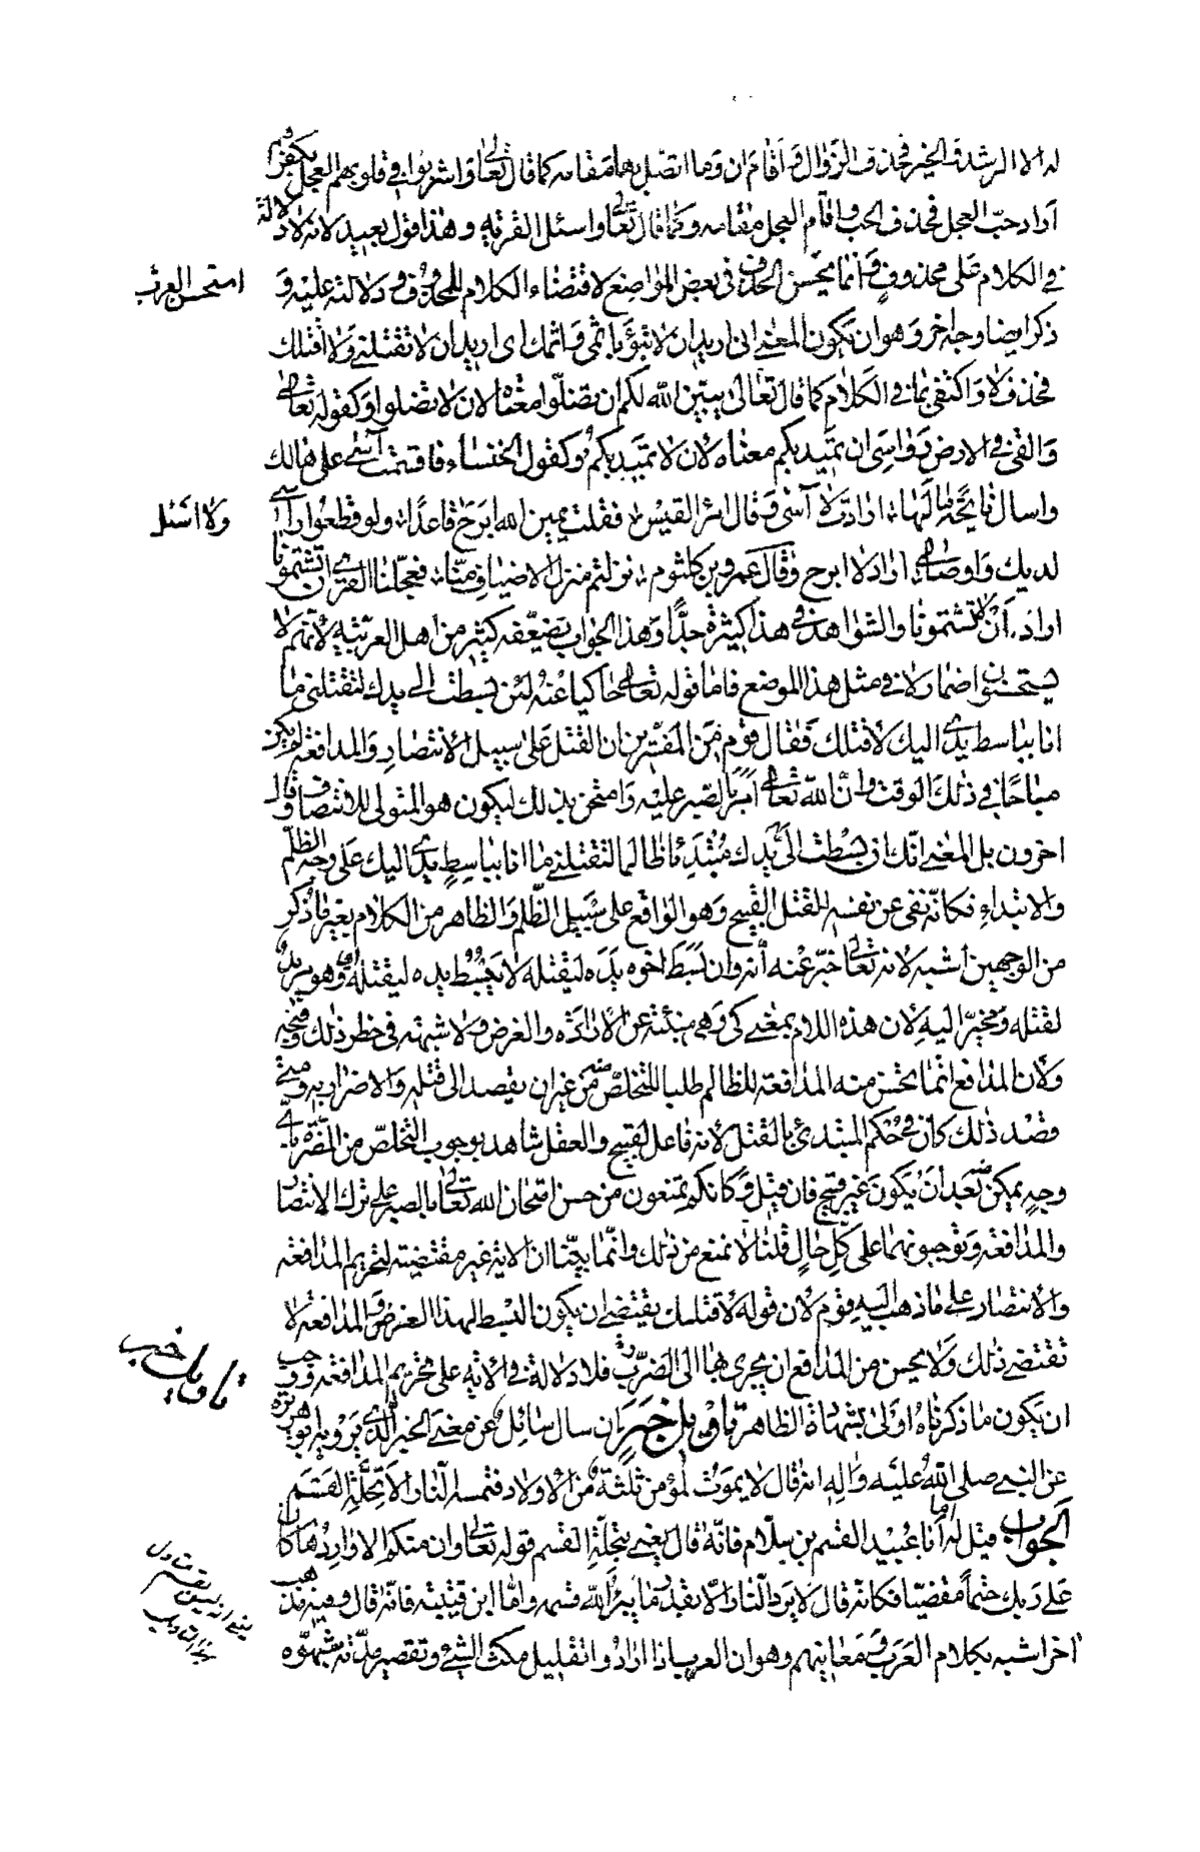 له الا الرشد والخير فحذف الزوال واقام ان وما اتصل بها مقامه كما قال تعالى واشربوا في قلوبهم العجل بكفرهم
اراد حبّ العجل فحذف الحب واقام العجل مقامه وكما قال تعالى واسئل القرية وهذا قول بعيد لانه لا دلالة
في الكلام على محذوف وانما يحسن الحذف في بعض المواضع لاقتضاء الكلام للمحذوف ودلالته عليه و
امتحن العرب
ذكر ايضا وجه اخر وهو ان يكون المعنى انى اريد ان لا تبوؤ باثمى واثمك اى اريد ان لا تقتلنى ولا اقتلك
فحذف لا واكتفى بما في الكلام كما قال تعالى يبين الله لكم ان تضلّوا معناه لان لا تضلوا وكقوله تعالى
والقى في الارض رواسى ان تميد بكم معناه لان لا تميد بكم وكقول الخنساء فاقسمت آسى على هالك
واسال نائحة مالها اراد لا آسى وقال امرؤ القيس فقلت يمين الله ابرح قاعدا ولو قطعوا راسى
ولا اسئل
لديك واوصالى اراد لا ابرح وقال عمرو بن كلثوم نزلتم منزل الاضياف منّا فعجّلنا القرى ان تشتمونا
اراد ان لا تشتمونا والشواهد في هذا كثيرة جدّا وهذا الجواب يضعّفه كثير من اهل العربيّة لانهم لا
يستحسنون اضمار لا في مثل هذا الموضع فاما قوله تعالى حاكيا عنه لئن بسطت الى يدك لتقتلنى ما
انا بباسط يدى اليك لاقتلك فقال قوم من المفسّرين ان القتل على سبيل الانتصار والمدافعة لم يكن
مباحا في ذلك الوقت وان الله تعالى امر بالصبر عليه وامتحن بذلك ليكون هو المتولى للانتصاف وقال
اخرون بل المعنى انّك ان بسطت الىّ يدك مبتدئا ظالما لتقتلنى ما انا بباسط يدى اليك على وجه الظلم
والابتداء فكانّه نفى عن نفسه القتل القبيح وهو الواقع على سبيل الظلم والظاهر من الكلام بغير ما ذكر
من الوجهين اشبه لانه تعالى خبّر عنه انه وان بسط اخوه يده ليقتله لا يبسط يده ليقتله اى وهو مريد
لقتله ومخبر اليه لان هذه اللام بمعنى كى وهى منبئة عن الارادة والغرض ولا شبهة في حظر ذلك وقبحه
ولان المدافع انما يحسن منه المدافعة للظالم طلبا للتخلص منه من غير ان يقصد الى قتله والاضرار به ومتى
قصد ذلك كان في حكم المبتدئ بالقتل لانه فاعل القبيح والعقل شاهد بوجوب التخلّص من المضرّة باى
وجه يمكن منه بعد ان يكون غير قبيح فان قيل فكانكم تمنعون من حسن امتحان الله تعالى بالصبر على ترك الانتصار
والمدافعة وتوجبونهما على كل حال قلنا لا نمنع من ذلك وانّما بيّنّا ان الاية غير مقتضية لتحريم المدافعة
والانتصار على ما ذهب اليه قوم لان قوله لاقتلك يقتضى ان يكون البسط لهذا الغرض والمدافعة لا
تقتضى ذلك ولا يحسن من المدافع ان يجرى بها الى الضرر فلا دلالة في الاية على تحريم المدافعة ووجب
تاويل خبر
ان يكون ما ذكرناه اولى بشهادة الظاهر تاويل خبر ان سال سائل عن معنى الخبر الذى يرويه ابو هريرة
عن النبى صلى الله عليه واله انه قال لا يموت لمؤمن ثلثة من الاولاد فتمسه النار الا تحلّة القسم
الجواب قيل له اما ابا عبيد القسم بن سلام فانّه قال يعنى بتحلّة القسم قوله تعالى وان منكم الا واردها كان
على ربك حتما مقضيّا فكانه قال لا يرد النار الا بقدر ما يبرّ الله قسمه وامّا ابن قتيبة فانّه قال وفيه مذهب
اخر اشبه بكلام العرب ومعانيهم وهو ان العرب اذا ارادوا تقليل مكث الشئ وتقصير مدّته شبّهوه